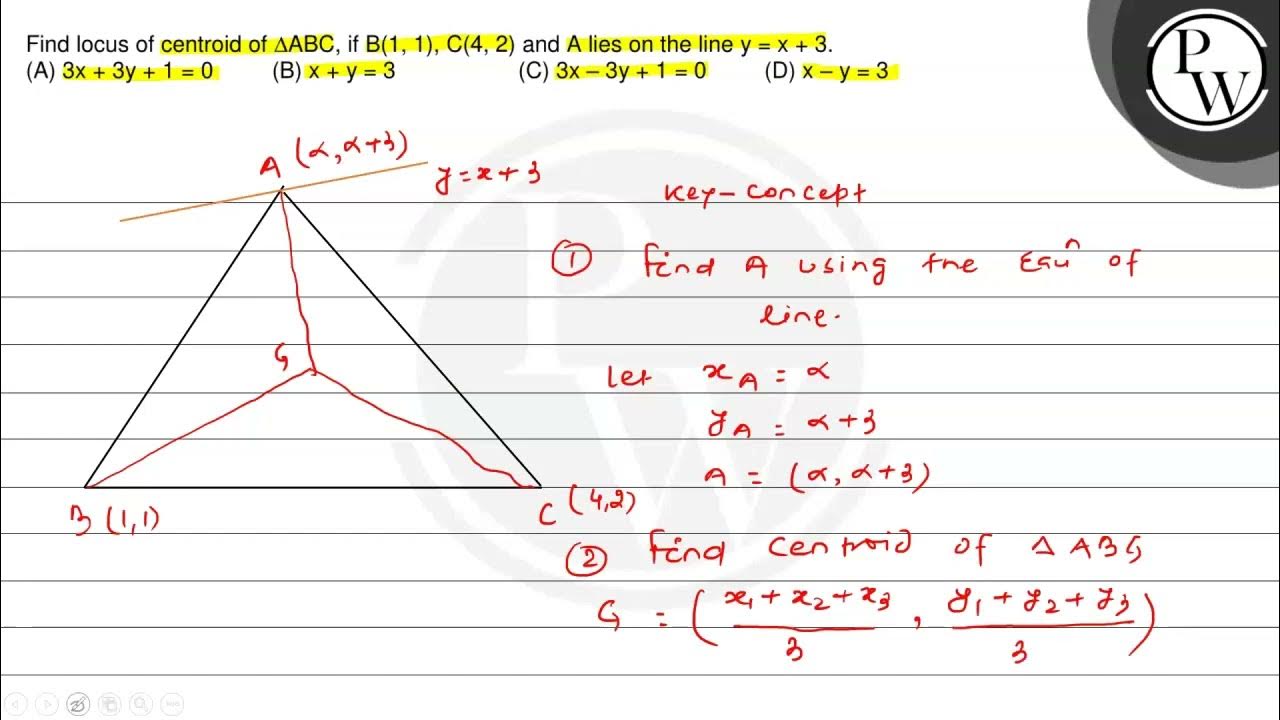 Find locus of centroid of ∆ABC, if B(1, 1), C(4, 2) and A lies on the line y = x + 3.
(A) 3x + 3y + 1 = 0 (B) x + y = 3 (C) 3x – 3y + 1 = 0 (D) x – y = 3
P
W
A (α, α+3)
y = x + 3
Key-concept
① Find A using the Equⁿ of
line.
G
let x_A = α
y_A = α+3
A = (α, α+3)
B (1,1)
C (4,2)
② Find centroid of ∆ ABG
G = ( (x₁ + x₂ + x₃)/3 , (y₁ + y₂ + y₃)/3 )
PW